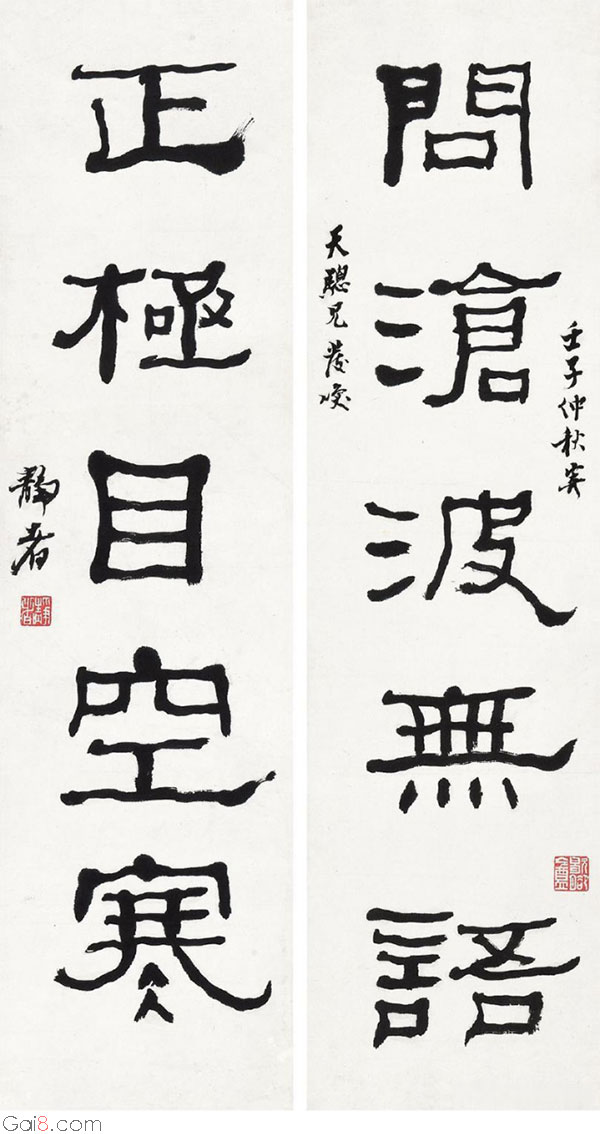 問滄波無語
正極目空寒
天驄兄茂咲
壬子仲秋
靜者
Gai8.com